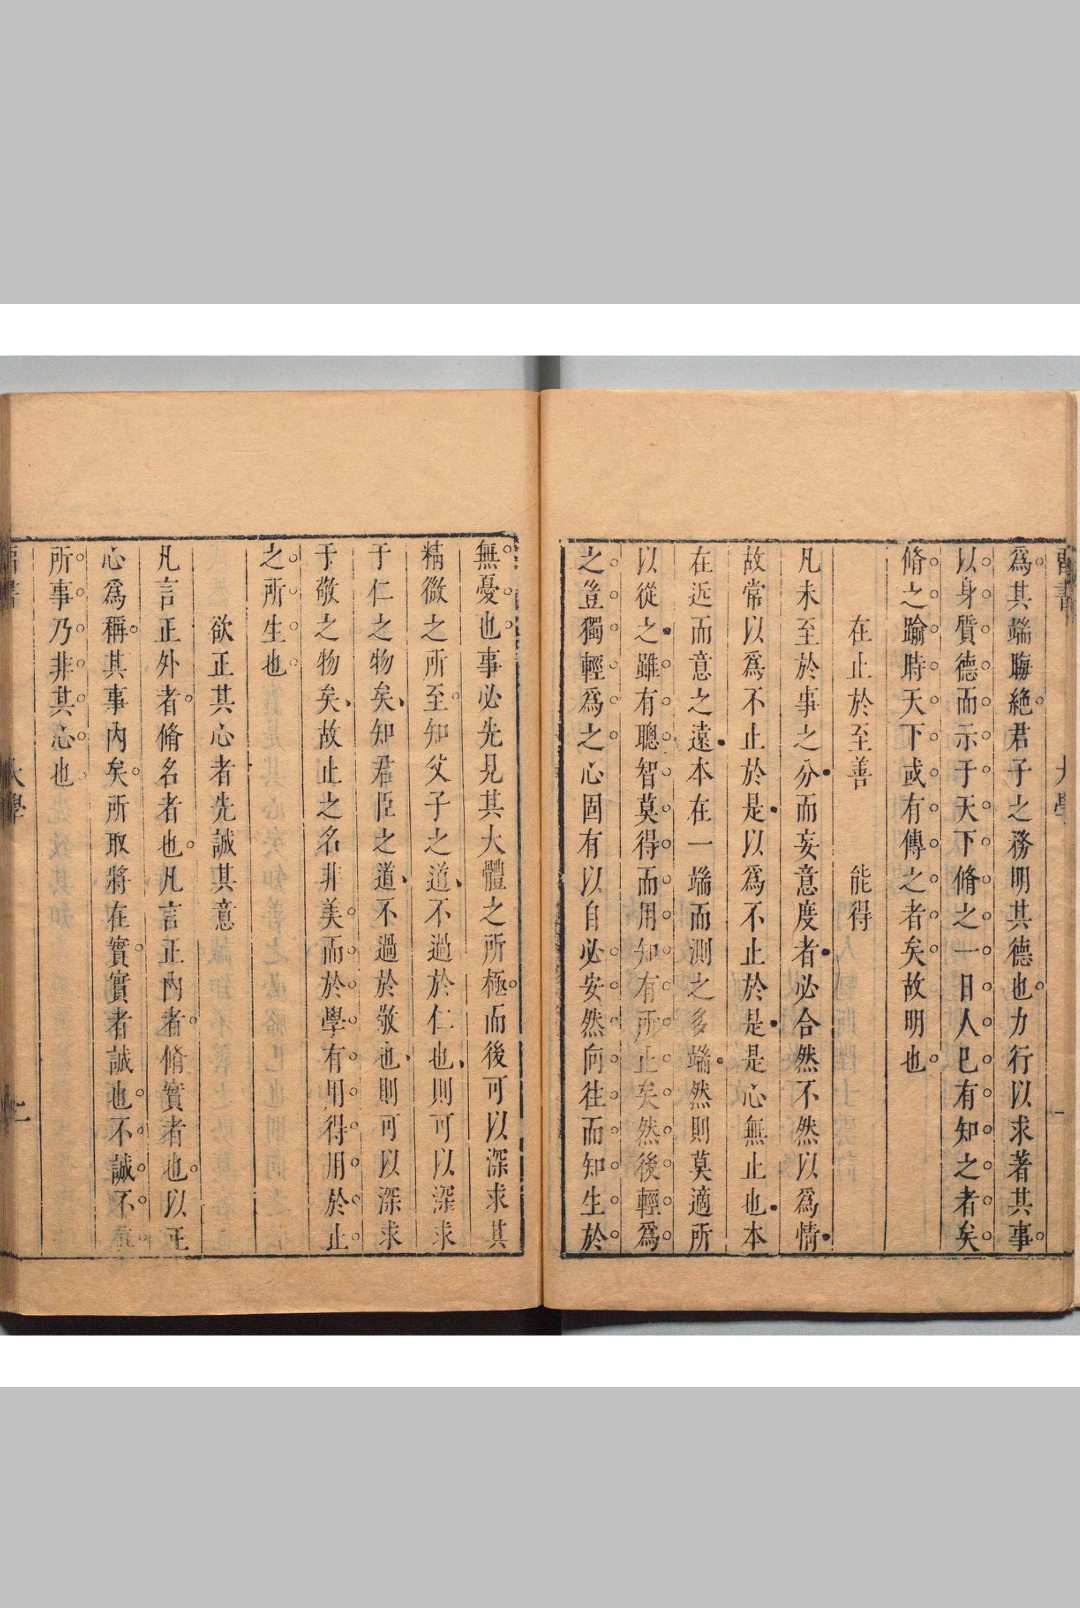 大學
爲其端晦絶君子之務明其德也力行以求著其事
以身質德而示于天下脩之一日人已有知之者矣
脩之踰時天下或有傳之者矣故明也
在止於至善 能得
凡未至於事之分而妄意度者必合然不然以爲情
故常以爲不止於是以爲不止於是是心無止也本
在近而意之遠本在一端而測之多端然則莫適所
以從之雖有聰智莫得而用知有所止矣然後輕爲
之豈獨輕爲之心固有以自必安然向往而知生於
無憂也事必先見其大體之所極而後可以深求其
精微之所至知父子之道不過於仁也則可以深求
于仁之物矣知君臣之道不過於敬也則可以深求
于敬之物矣故止之名非美而於學有用得用於止
之所生也
欲正其心者先誠其意
凡言正外者脩名者也凡言正內者脩實者也以正
心爲稱其事內矣所取將在實實者誠也不誠不
所事乃非其心也
大學